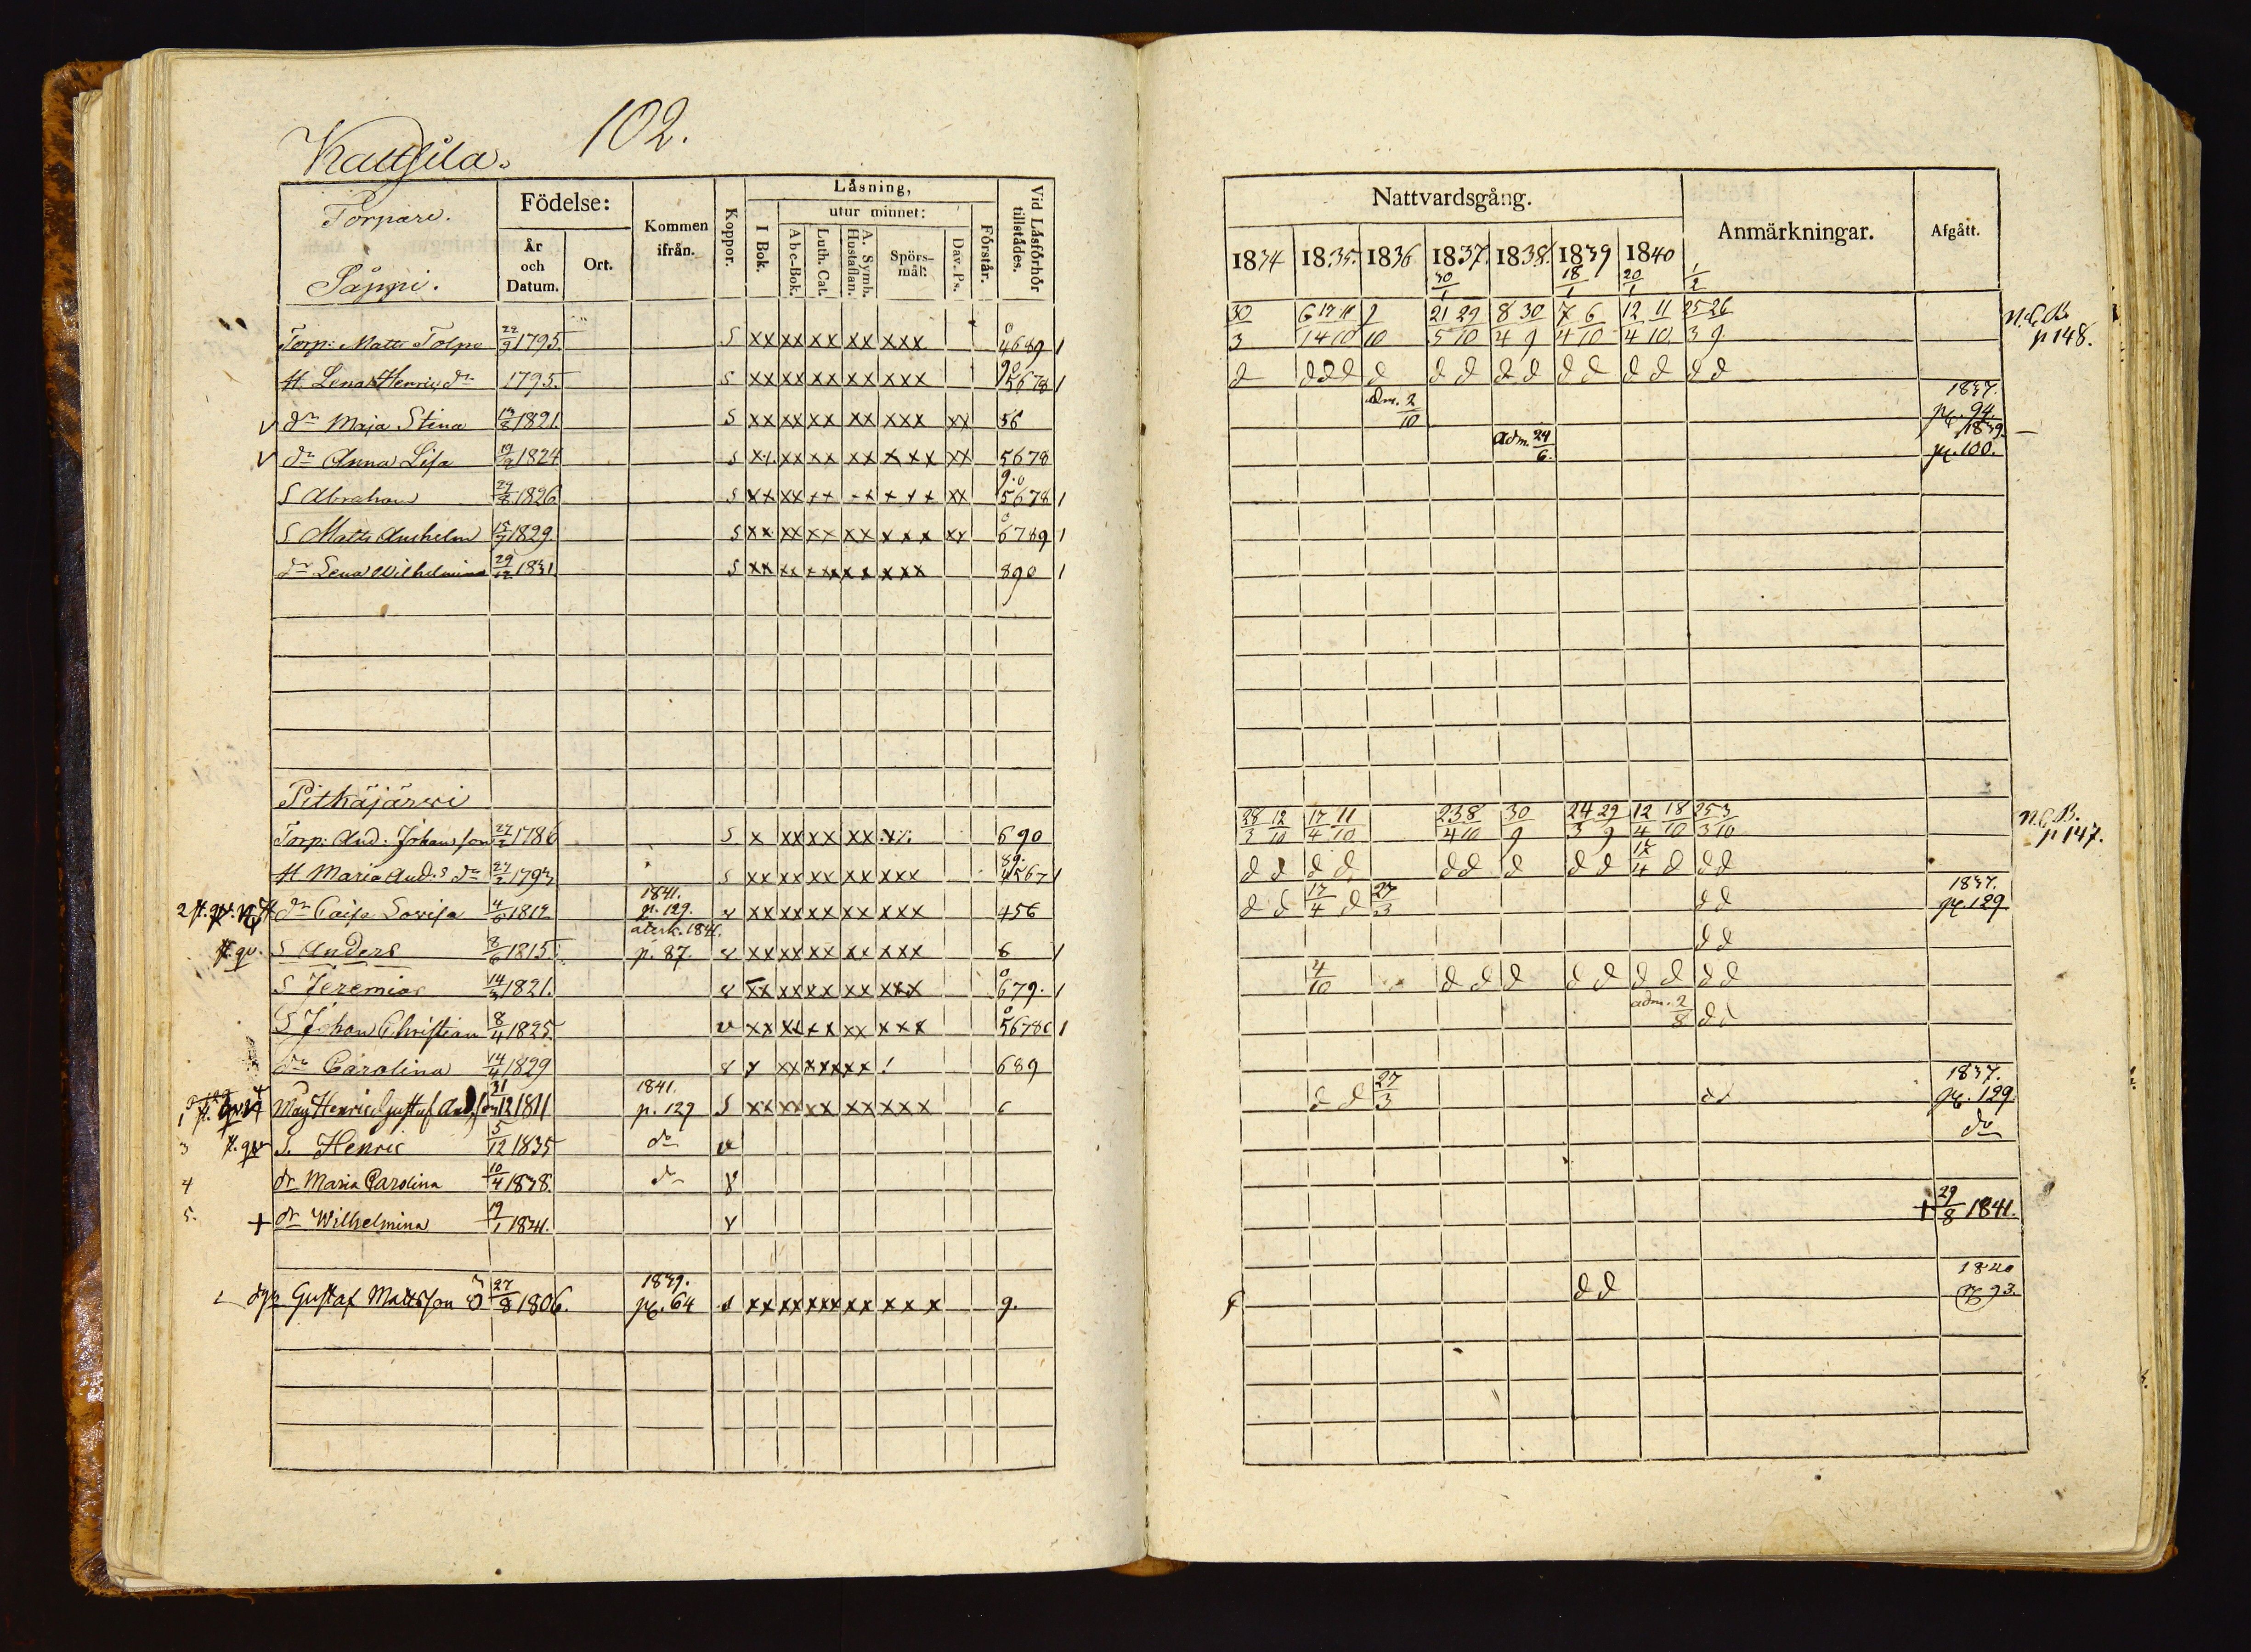 102.
Kattsila.
Torpare.
Säppi.
Födelse:
År och Datum.
Ort.
Kommen ifrån.
Koppor.
Låsning,
I Bok.
utur minnet:
Abc-Bok.
Luth. Cat.
A. Symb. Hustaflan.
Spörsmål:
Dav. Ps.
Förstår.
Vid Låsförhör tillstådes.
Torp: Matts Tolpo 22/9 1795. S xx xx xx xx xxx 0 4689 1
H. Lena Henrics dr 1795. S xx xx xx xx xxx 90 5678 1
dr Maja Stina 1821. S xx xx xx xx xxx xx 56
dr Anna Lisa 1824 S xx xx xx xx xxx xx 5678
S Abraham 29/8 1826 S xx xx xx xx xxx xx 9.0 5678 1
S Matts Anshelm 15/7 1829 S xx xx xx xx xxx xx 0 6789 1
dr Lena Wilhelmina 29/12 1831. S xx xx xx xx xxx 890 1
Pitkäjärwi
Torp: And: Johansson 1786 S. x xx xx xx 690
H Maria And.s dr 1793 S xx xx xx xx xxx 89. 4567 1
dr Caisa Lovisa 4/6 1812. 1841. p. 129. v xx xx xx xx xxx 456
S Anders 8/6 1815 återk. 1841. p. 87. v xx xx xx xx xxx 6 1
S Jeremias 14/3 1821. v xx xx xx xx xxx 0 679. 1
S Johan Christian 8/4 1825. v xx xx xx xx xxx 0 5678 1
dr Carolina 14/4 1829 v x xx xx xx ! 689
Måg Henric Gustaf And.son 31/12 1811 1841. p. 129 S xx xx xx xx xxx 6
3 S. Henric 5/12 1835 do v
4 dr Maria Carolina 10/4 1838. do v
5. + dr Wilhelmina 19/1 1841. v
Gustaf Mattsson 27/8 1806. 1839. pg. 64 s xx xx xxx xx xxx 9.
Nattvardsgång.
Anmärkningar.
Afgått.
1834 1835. 1836 1837. 1838. 1839 1840
30/1 18/1 20/1 1/2
30/3 9/10 21/5 29/10 8/4 30/9 7/4 6/10 12/4 11/10 25/3 26/9
N.C.B. p 148.
d ddd d d d d d d d d d d d
adm. 2/10 1837. pg. 94.
adm. 24/6. 1839. pg. 100.
28/3 12/10 17/4 11/10 23/4 8/10 30/9 24/3 29/9 12/4 18/10 25/3 3/10
N.C.B. p 147.
d d d d d d d d d d d d
d d 17/4 d 27/3 d d 1837. pg. 129
d d
4/10 d d d d d d d d d
adm. 2/8 d d
d d 27/3 d d 1837. pg. 129.
do
+ 29/8 1841.
d d 1840 pg 93.